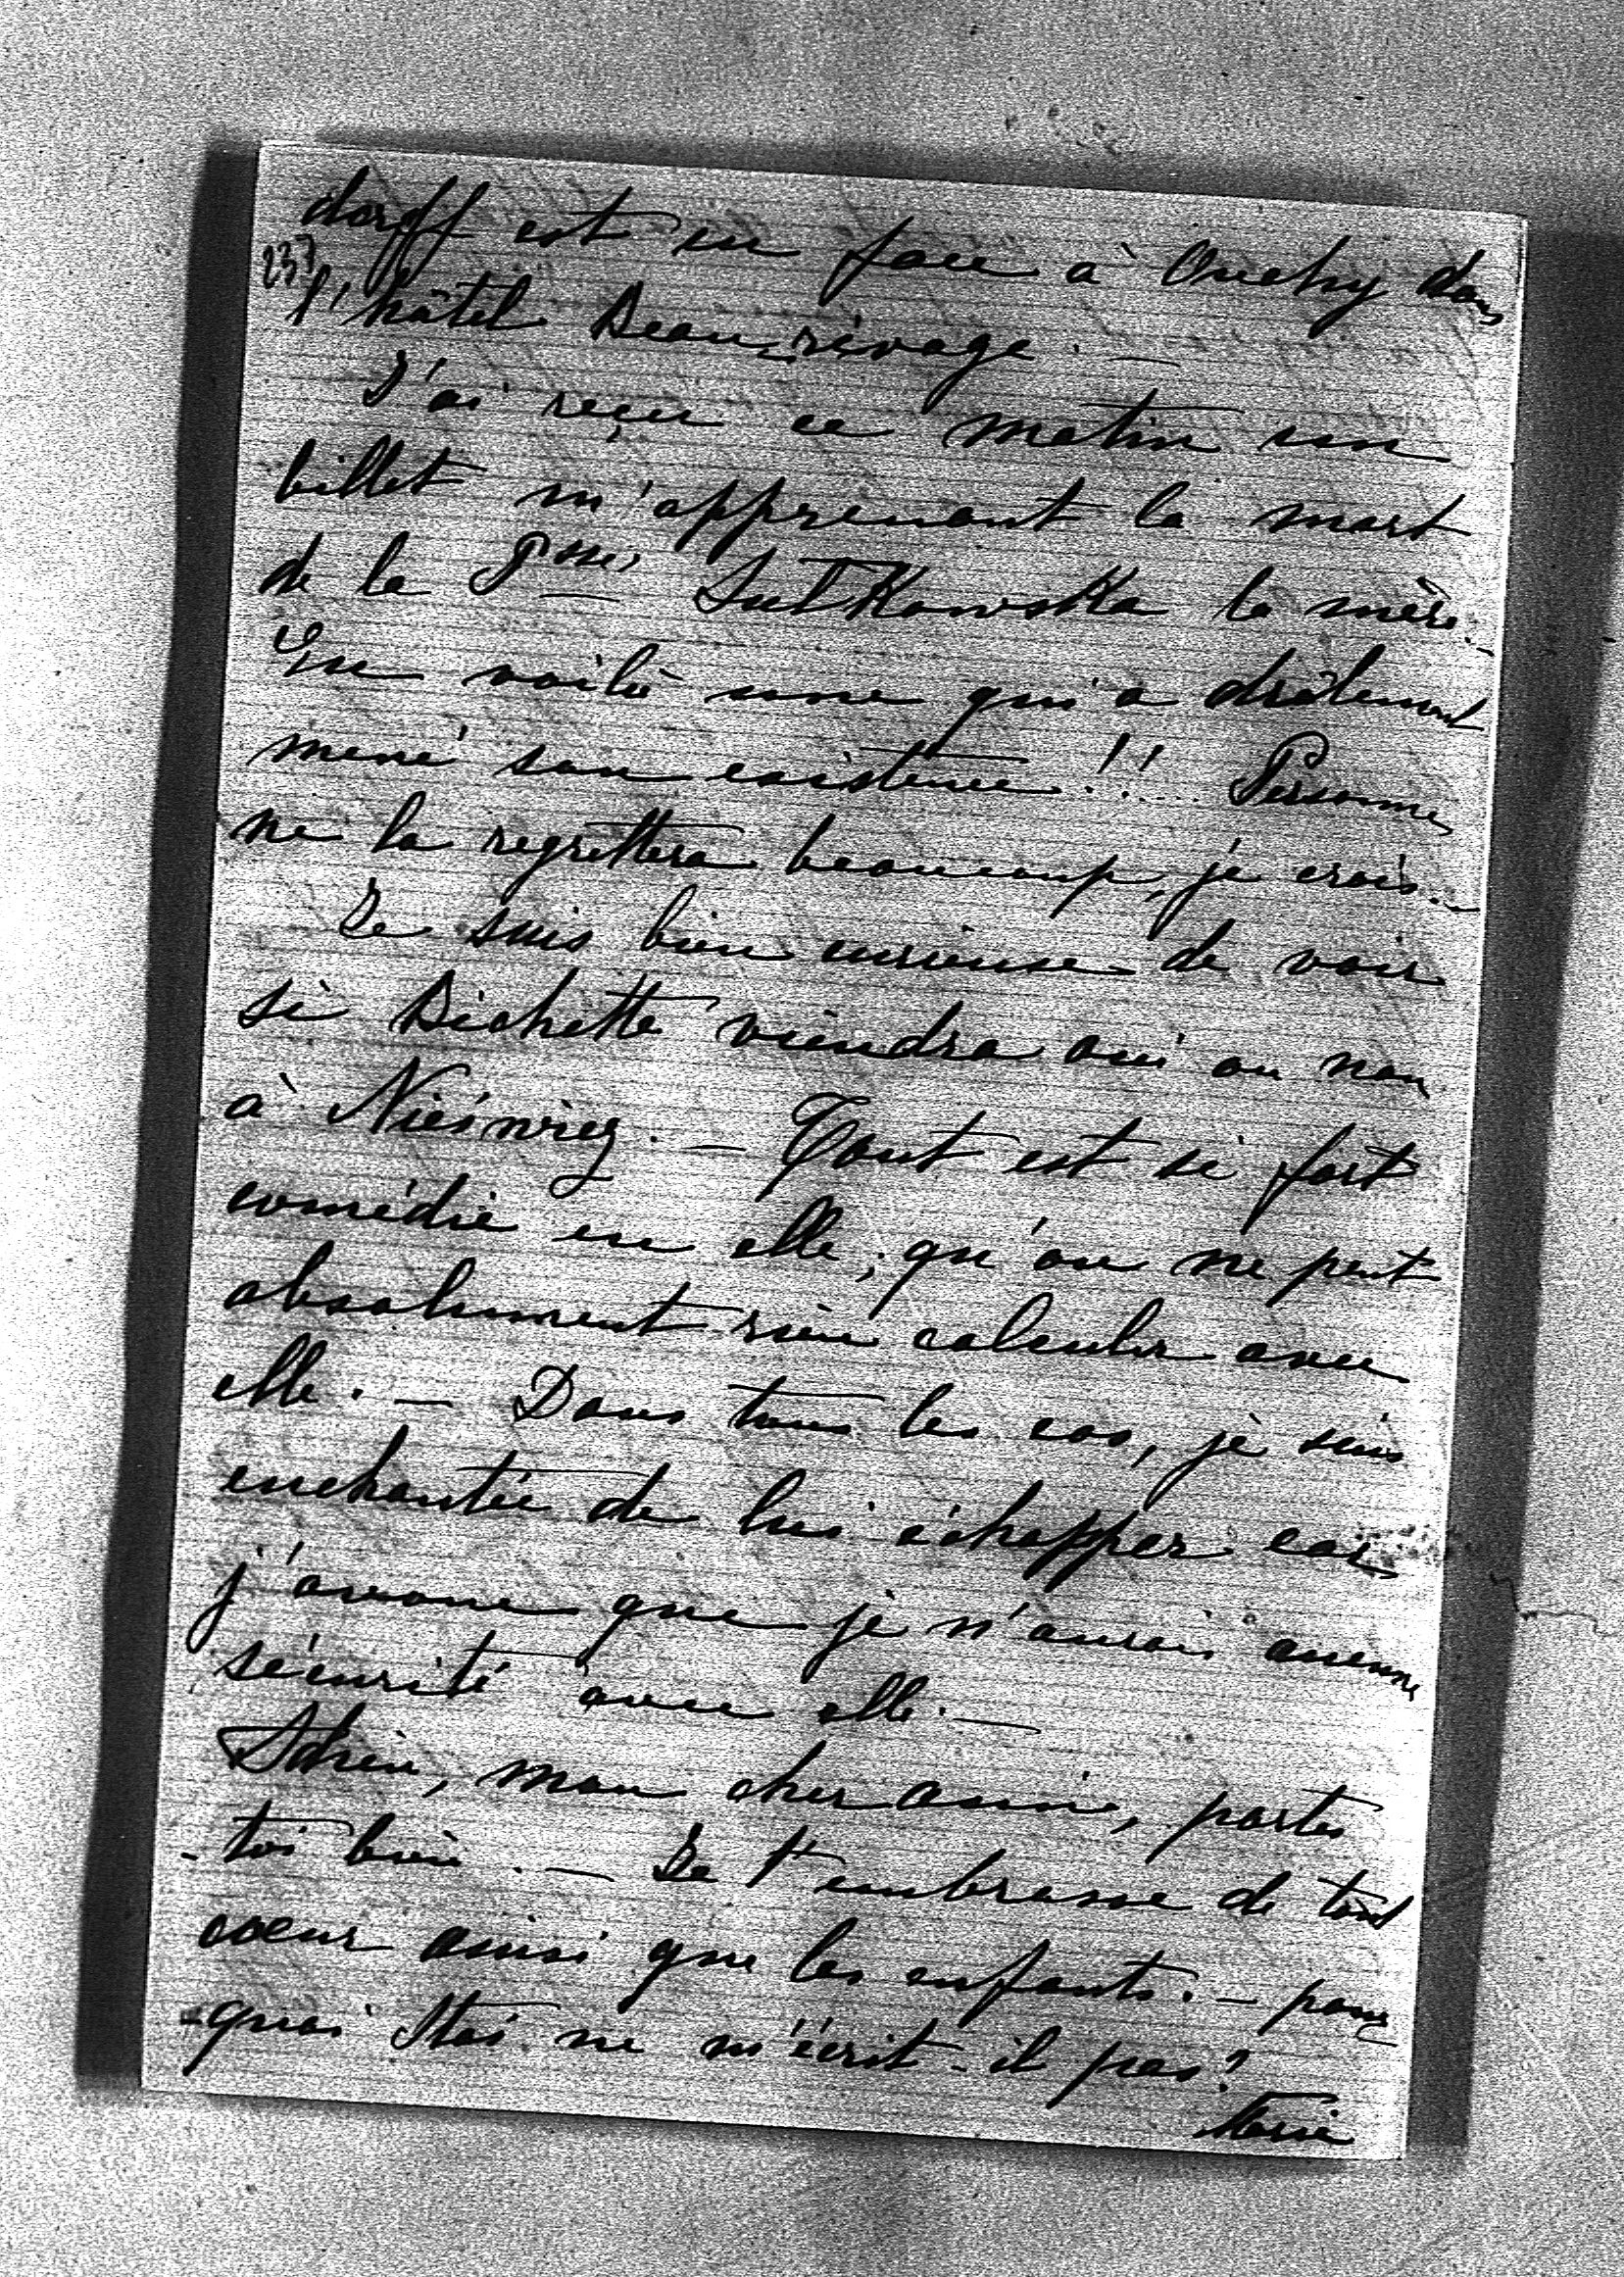 dorff est en face à Ouchy dans
237
l'hôtel Beau-rivage. —
J'ai reçu ce matin un
billet m'apprenant la mort
de la Psse Sulkowska la mère. -
En voilà une qui a drôlement
mené son existence!!... Personne
ne la regrettera beaucoup, je crois. -
Je suis bien curieuse de voir
si Bichette viendra oui ou non
à Nieśwież. — Tout est si fort
comédie en elle, qu'on ne peut
absolument rien calculer avec
elle. — Dans tous les cas, je suis
enchantée de lui échapper car
j'avoue que je n'aurai aucune
sécurité avec elle. —
Adieu, mon cher aimé, portes
-toi bien. — Je t'embrasse de tout
cœur ainsi que les enfants. — pour
-quoi Stas ne m'écrit-il pas?
Marie